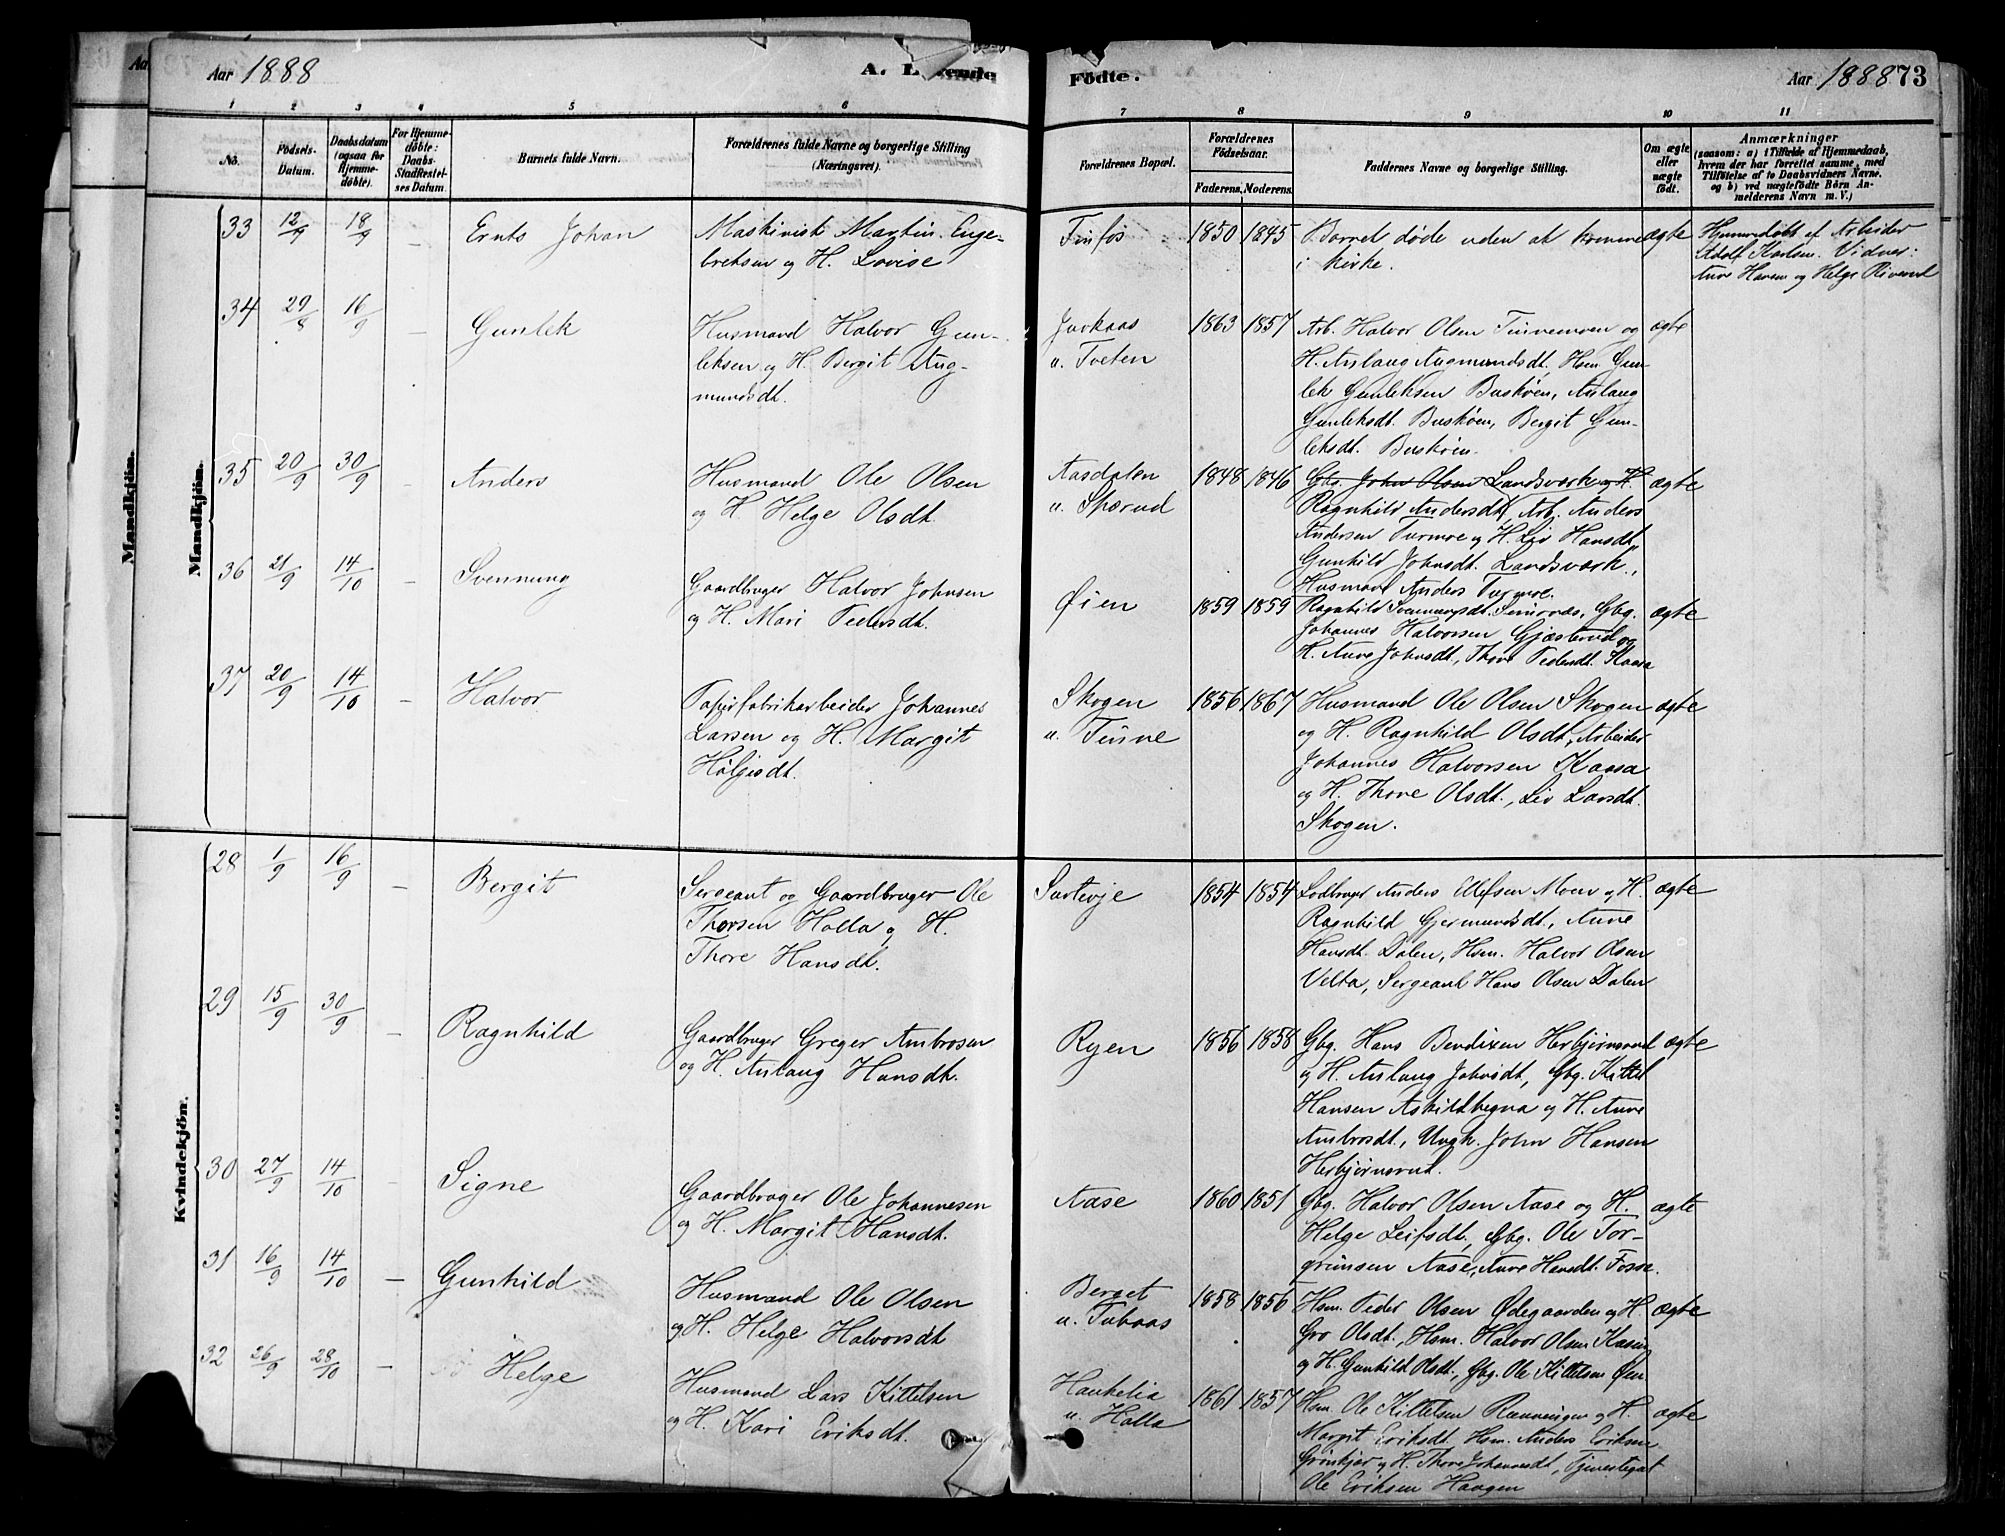 Aar 1888
A. Levende
Fødte.
Aar 1888 73
1 2 3 4 5 6 7 8 9 10 11
No.
Fødsels-
Datum.
Daabsdatum
(ogsaa for
Hjemme-
døbte).
For Hjemme-
døbte:
Daabs-
Stadfæstel-
ses Datum.
Barnets fulde Navn.
Forældrenes fulde Navne og borgerlige Stilling
(Næringsvei).
Forældrenes Bopæl.
Forældrenes
Fødselsaar.
Faderens. Moderens.
Faddernes Navne og borgerlige Stilling.
Om ægte
eller
uægte
født.
Anmærkninger
(saasom: a) i Tilfælde af Hjemmedaab,
hvem der har forrettet samme, med
Tilføielse af to Daabsvidners Navne,
og b) ved uægtefødte Børn An-
melderens Navn m. V.)
Mandkjön.
Mandkjön.
33 12/9 18/9 - Ernts Johan
Maskinist Martin Enge-
bretsen og H. Lovise
Tinfos 1850 1845
Barnet døde uden at komme
i Kirke.
ægte
Hjemmedøbt af Arbeider
Adolf Karlsen. Vidner:
Anne Hansen og Helge Riverud
34 29/8 16/9 - Gunlek
Husmand Halvor Gun-
leksen og H. Bergit Aug-
mundsdt.
Juvkaas
u. Tveten
1863 1857
Arb. Halvor Olsen Tinnemoen og
H. Aslaug Augmundsdt, Hsm. Gun
lek Gunleksen Buskøen, Aslaug
Gunleksdt. Buskøen, Bergit Gun-
leksdt. Buskøen.
ægte
35 20/9 30/9 - Anders
Husmand Ole Olsen
og H Helge Olsdt.
Aasdalen
u. Skærud
1848 1846
Gbg. John Olsen Landsværk og H.
Ragnhild Andersdt, Arb. Anders
Andersen Turmoe og H. Liv Hansdt,
Gunhild Johnsdt. Landsværk,
Husmand Anders Turmoe.
ægte
36 21/9 14/10 - Svennung
Gaardbruger Halvor Johnsen
og H. Mari Pedersdt.
Øien 1859 1859
Ragnhild Svennungsdt. Semsnæs, Gbg.
Johannes Halvorsen Gjæsterud og
H. Anne Johnsdt., Thore Pedersdt. Kaasa
ægte
37 20/9 14/10 - Halvor
Papirfabrikarbeider Johannes
Larsen og H. Margit
Høljesdt.
Skogen
u. Tinne
1856 1867
Husmand Ole Olsen Skogen
og H. Ragnhild Olsdt, Arbeider
Johannes Halvorsen Kaasa
og H. Thone Olsdt., Liv Larsdt.
Skogen.
ægte
Kvindekjön.
28 1/9 16/9 - Bergit
Sergeant og Gaardbruger Ole
Thorsen Holla og H.
Thore Hansdt.
Sartevje 1854 1854
Lodbruger Anders Olefsen Moen og H.
Ragnhild Gjermundsdt., Anne
Hansdt. Dalen, Hsm. Halvor Olsen
Velta, Sergeant Hans Olsen Dalen
ægte
29 15/9 30/9 - Ragnhild
Gaardbruger Greger Ambrosen
og H. Aslaug Hansdt.
Ryen 1856 1858
Gbg. Hans Bendixen Herbjørnsrud
og H. Aslaug Johnsdt, Gbg. Kittel
Hansen Askildhegna og H. Anne
Ambrosdt., Ungk. John Hansen
Herbjørnsrud.
ægte
30 27/9 14/10 Signe
Gaardbruger Ole Johannesen
og H. Margit Hansdt.
Aase 1860 1851
Gbg. Halvor Olsen Aase og H.
Helge Leifsdt, Gbg. Ole Tor-
grimsen Aase, Anne Hansdt. Fosse.
ægte
31 16/9 14/10 - Gunhild
Husmand Ole Olsen
og H. Helge Halvorsdt
Berget
u. Tubaas
1858 1856
Hsm. Peder Olsen Ødegaarden og H.
Gro Olsdt., Hsm. Halvor Olsen Kasin
og H. Gunhild Olsdt., Gbg. Ole Kittelsen Øen
ægte
32 26/9 28/10 - Helge
Husmand Lars Kittelsen
og H. Kari Eriksdt.
Haukelia
u. Holla
1861 1857
Hsm. Ole Kittelsen Rønningen og H.
Margit Eriksdt. Hsm. Anders Eriksen
Grønkjær og H. Thore Johannesdt, Tjenestegut
Ole Eriksen Haugen
ægte